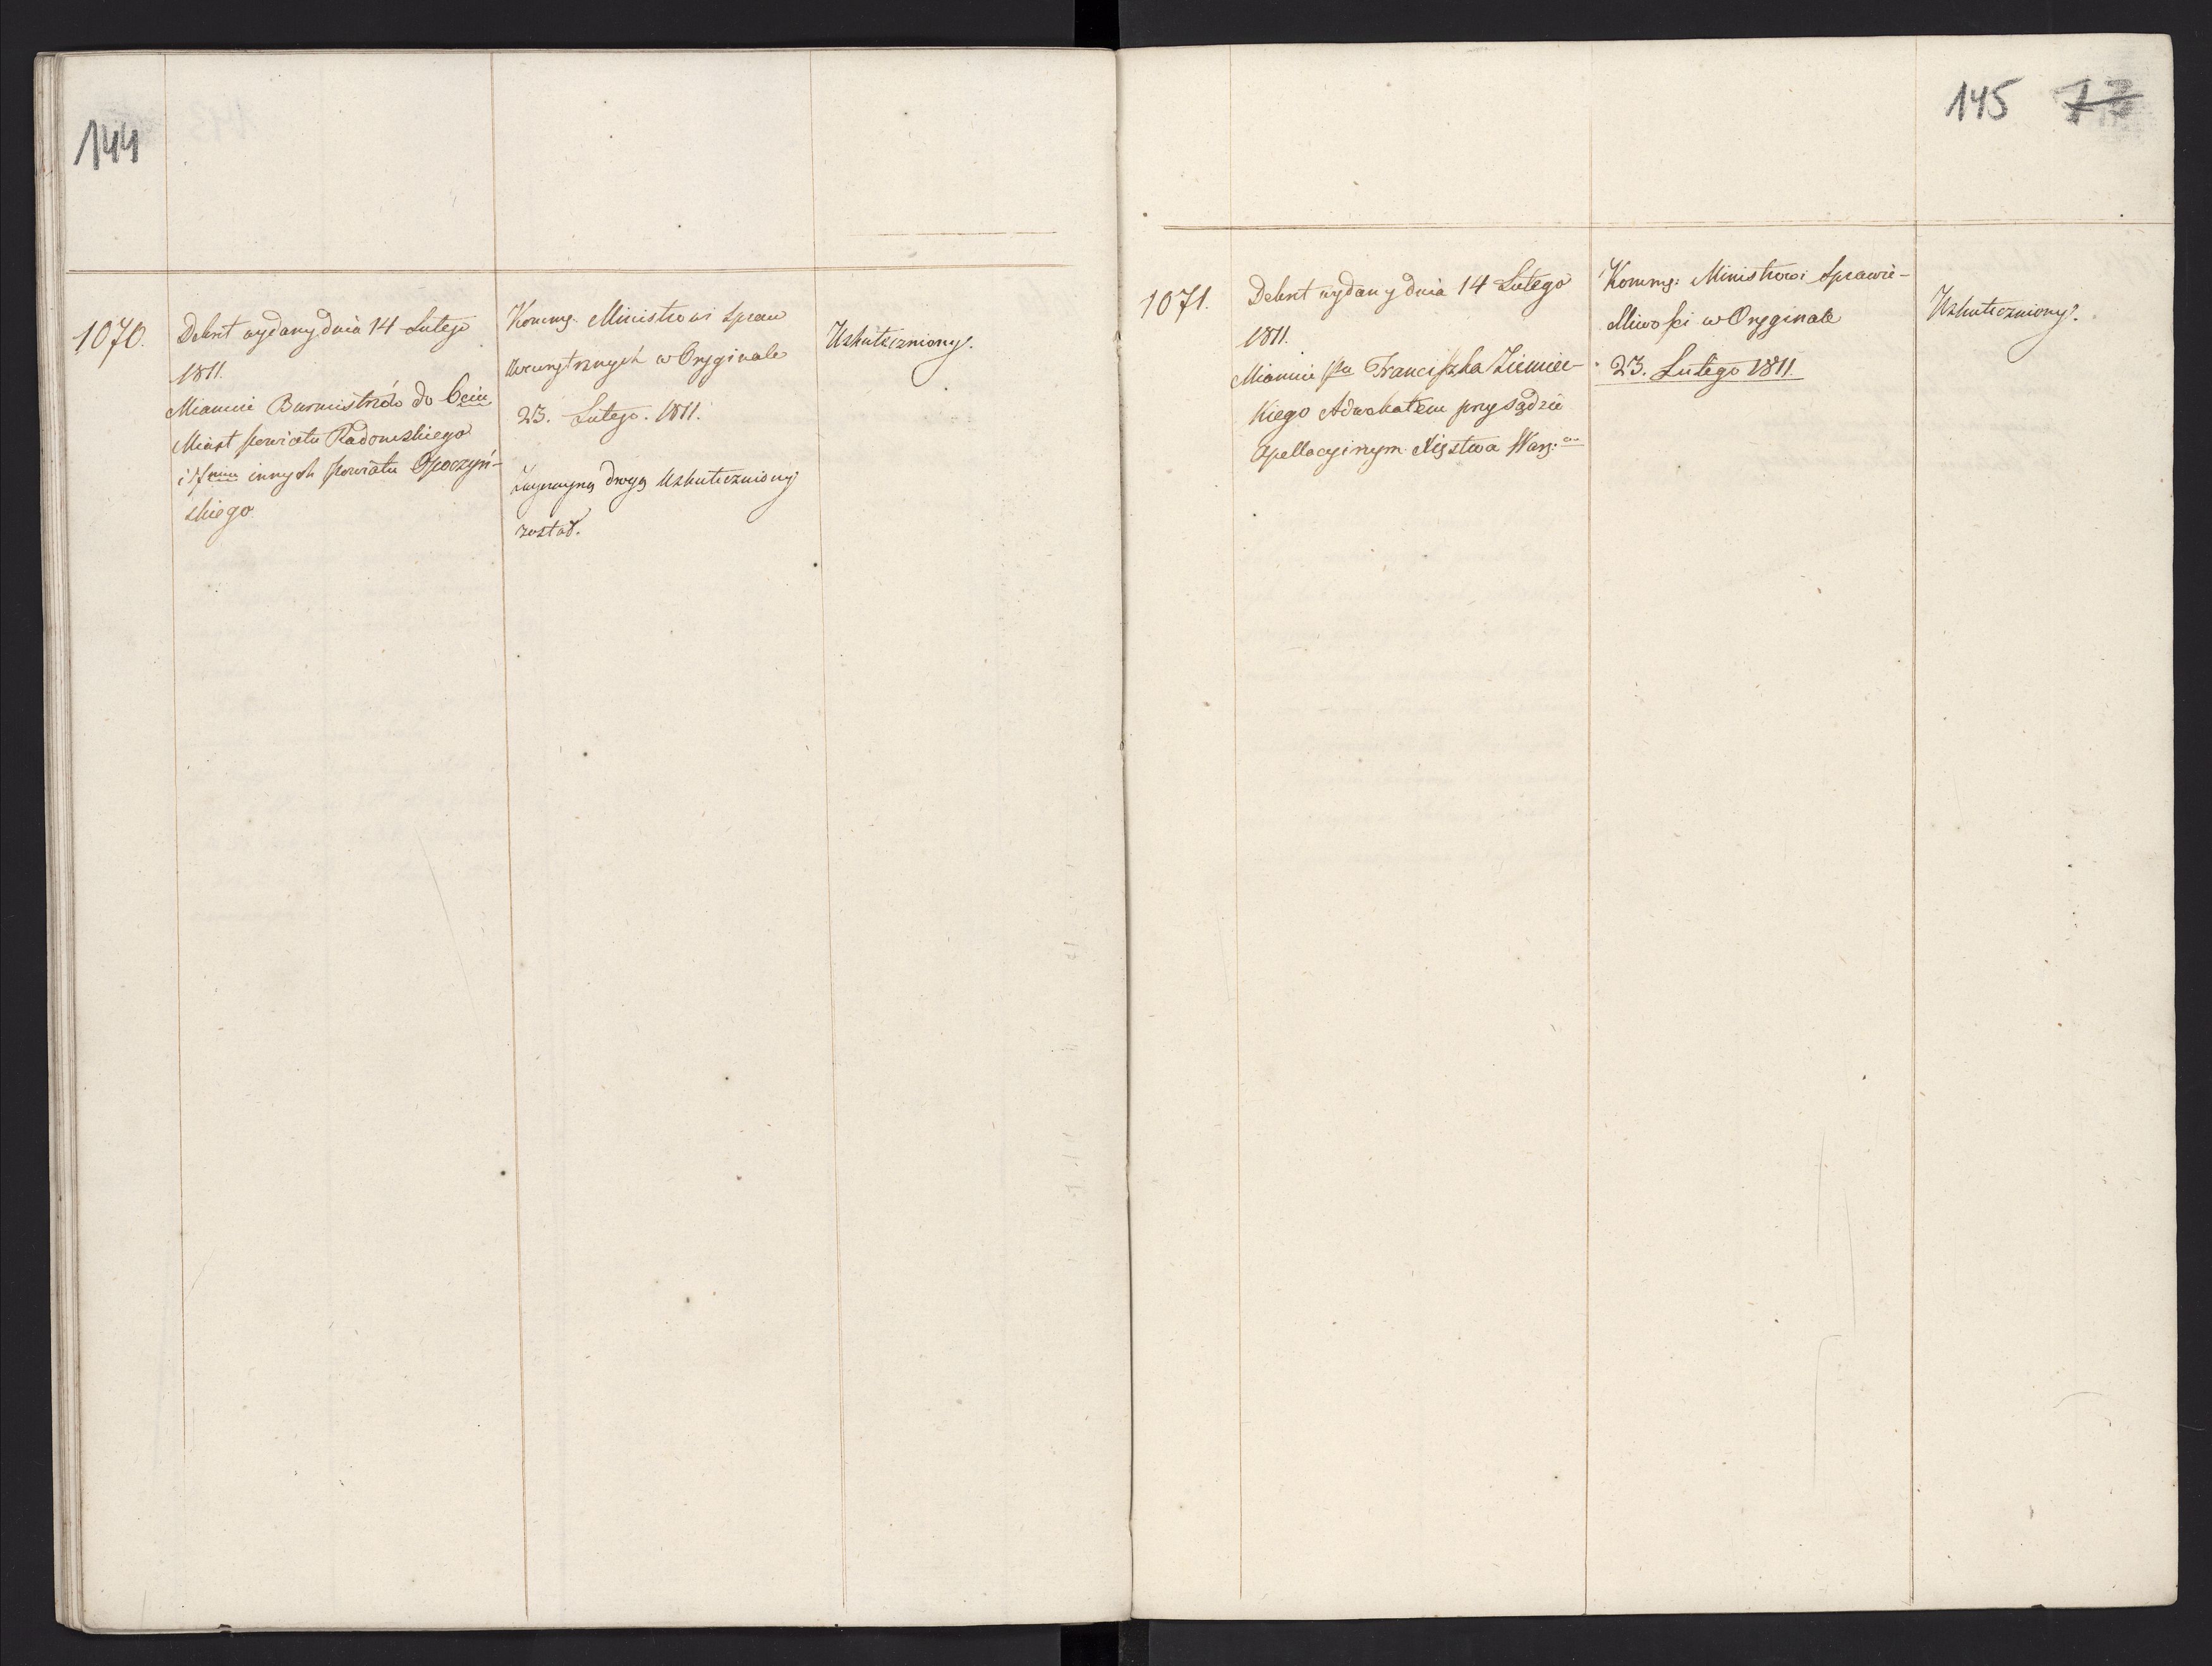 144
1070.
Dekret wydany dnia 14 Lutego
1811.
Mianuie Burmistrzów do 6ciu
Miast powiatu Radomskiego
i innych powiatu Opoczyń-
skiego
Kommg. Ministrowi Spraw
Wewnętrznych w Oryginale
23. Lutego. 1811.
drogą Uskuteczniony
został.
Uskuteczniony.
145 73
1071.
Dekret wydany dnia 14 Lutego
1811.
Mianuie Pa Franciszka Ziemiec-
kiego Adwokatem przy Sądzie
Apellacyinym Xięstwa Warz:
Kommg: Ministrowi Sprawie-
dliwości w Oryginale
23. Lutego 1811
Uskuteczniony.